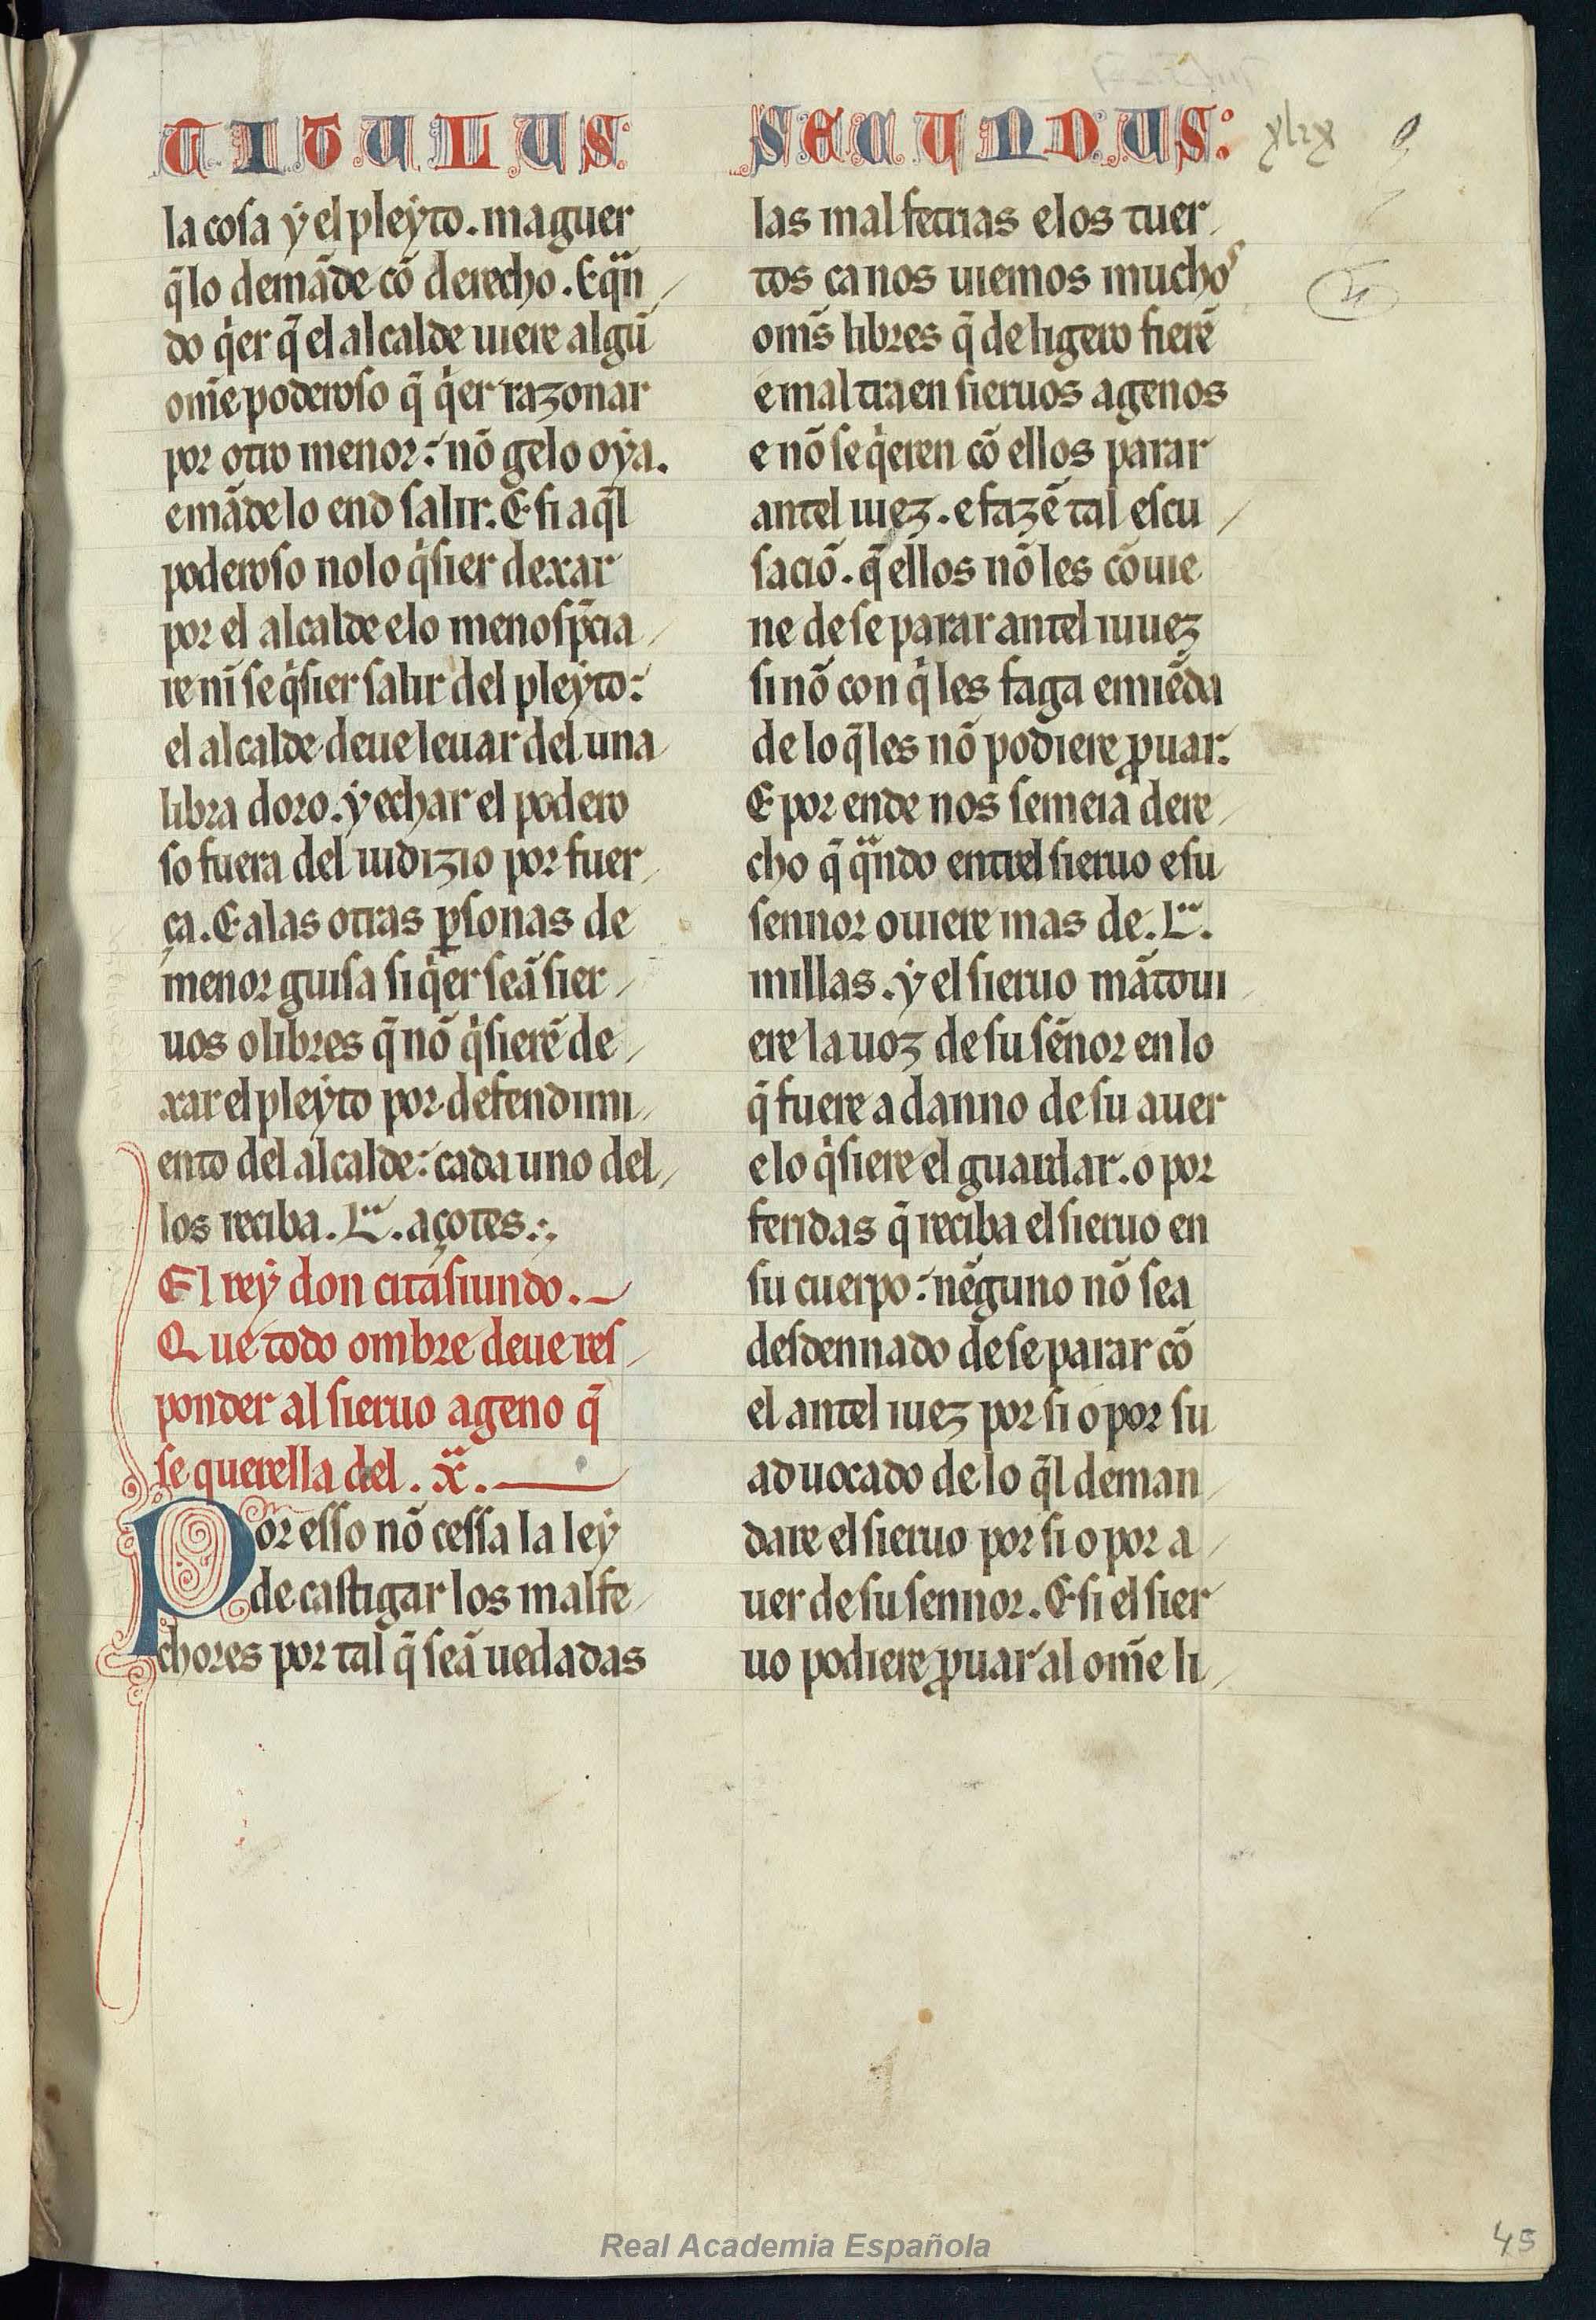 TITULUS SECUNDUS:
xlix
la cosa ẏ el pleẏto. maguer
q̄ lo demāde cō derecho. E quan
do qͥer q̄ el alcalde uiere algū
om̄e poderoso q̄ qͥer razonar
por otro menor: nō gelo oẏa.
e māde lo end salir. E si aq̄l
poderoso no lo qͥsier dexar
por el alcalde e lo menosp̄cia
re nī se qͥsier salir del pleẏto:
el alcalde deue leuar del una
libra doro. ẏ echar el podero
so fuera del iudizio por fuer
ça. E a las otras ꝑsonas de
menor guisa si qͥer seā sier
uos o libres q̄ nō qͥsierē de
xar el pleẏto por defendimi
ento del alcalde: cada uno del
los reciba. L.ᵃ açotes.
El reẏ don citāsiundo.
Que todo ombre deue res
ponder al sieruo ageno q̄
se querella del. x.ᵃ
Por esso nō cessa la leẏ
de castigar los malfe
chores por tal q̄ seā uedadas
las malfetrias e los tuer
tos ca nos uiemos muchos
om̄s libres q̄ de ligero fierē
e mal traen sieruos agenos
e nō se qͥeren cō ellos parar
antel iuez. e fazē tal escu
saciō. q̄ ellos nō les cōuie
ne de se parar antel iuuez
si nō con qͥ les faga emiēda
de lo q̄ les nō podiere ꝓuar.
E por ende nos semeia dere
cho q̄ qᵃndo entrel sieruo e su
sennor ouiere mas de. L.ᵃ
millas. ẏ el sieruo mātoui
ere la uoz de su sēnor en lo
q̄ fuere a danno de su auer
e lo qͥsiere el guardar. o por
feridas q̄ reciba el sieruo en
su cuerpo: nēguno nō sea
desdennado de se parar cō
el antel iuez por si o por su
aduocado de lo q̄l deman
dare el sieruo por si o por a
uer de su sennor. E si el sier
uo podiere ꝓuar al om̄e li
Real Academia Española
45